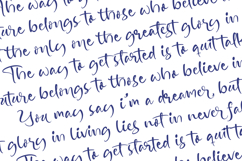 The way to get started is to
ture belongs to those who believe
the only one the greatest glory in
The way to get started is to quit talk
uture belongs to those who believe in
You may say i'm a dreamer, but
t glory in living lies not in never fal
to get started is to quit